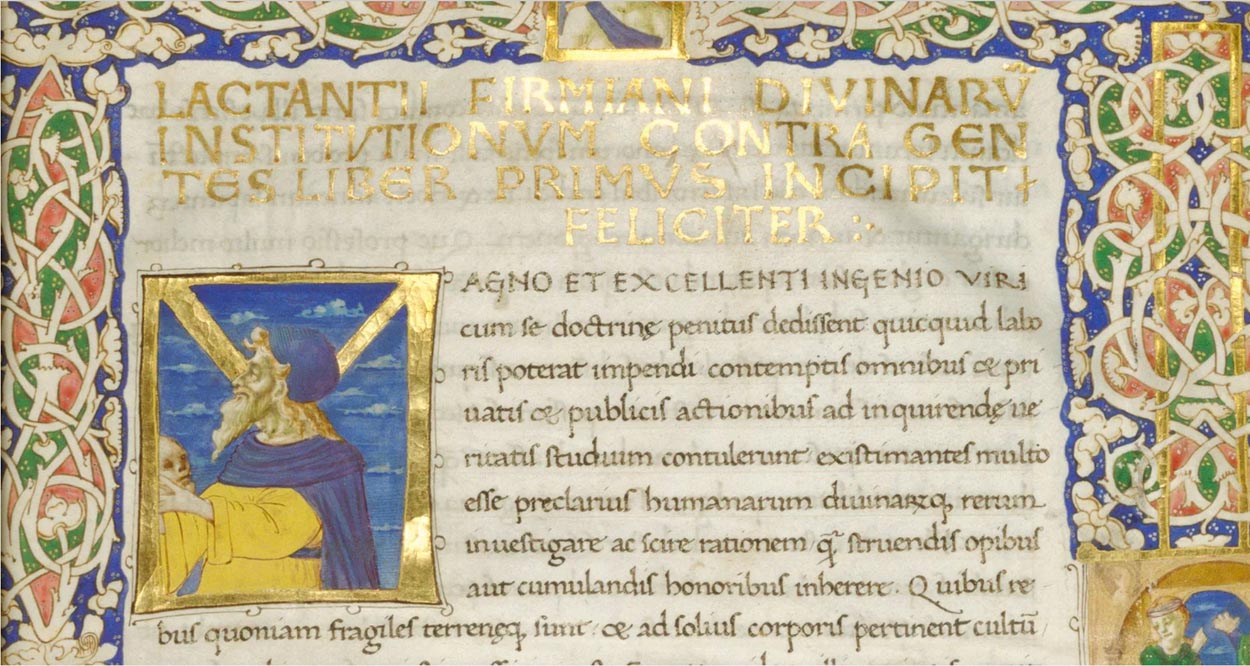 LACTANTII FIRMIANI DIVINARṼ
INSTITVTIONVM CONTRA GEN
TES LIBER PRIMVS INCIPIT
FELICITER :
MAGNO ET EXCELLENTI INGENIO VIRI
cum se doctrinę penitus dedissent quicquid labo
ris poterat impendi contemptis omnibus & pri
uatis & publicis actionibus ad inquirendę ue
ritatis studium contulerunt existimantes multo
esse preclarius humanarum diuinarꝝq; rerum
inuestigare ac scire rationem q̃ struendis opibus
aut cumulandis honoribus inherere. Quibus re
bus quoniam fragiles terrenęq; sunt: & ad solius corporis pertinent cultũ